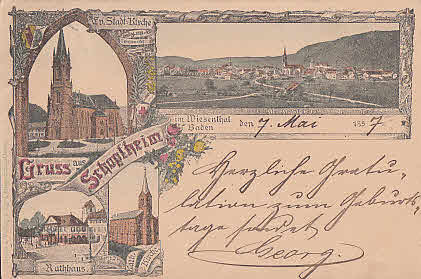 Ev. Stadt-Kirche
Gruss aus
Schopfheim
im Wiesenthal
Baden
den 7. Mai 1897
Herzliche Gratu-
lation zum Geburts-
tage sendet
Georg.
Rathhaus.